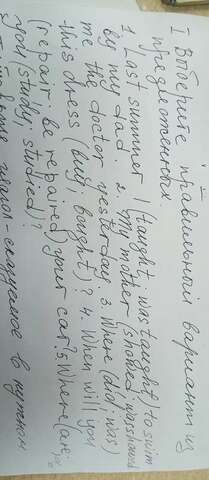 I Выберите правильный вариант из
предложенных
1 Last summer I (taught, was taught) to swim
by my dad. 2. My mother (showed, was showed
me the doctor yesterday 3. Where (did, was)
this dress (buy, bought)? 4. When will you
(repair, be repaired) your car? 5 Where (are,
you (study, studied)?
глагол-сказуемое в нужном